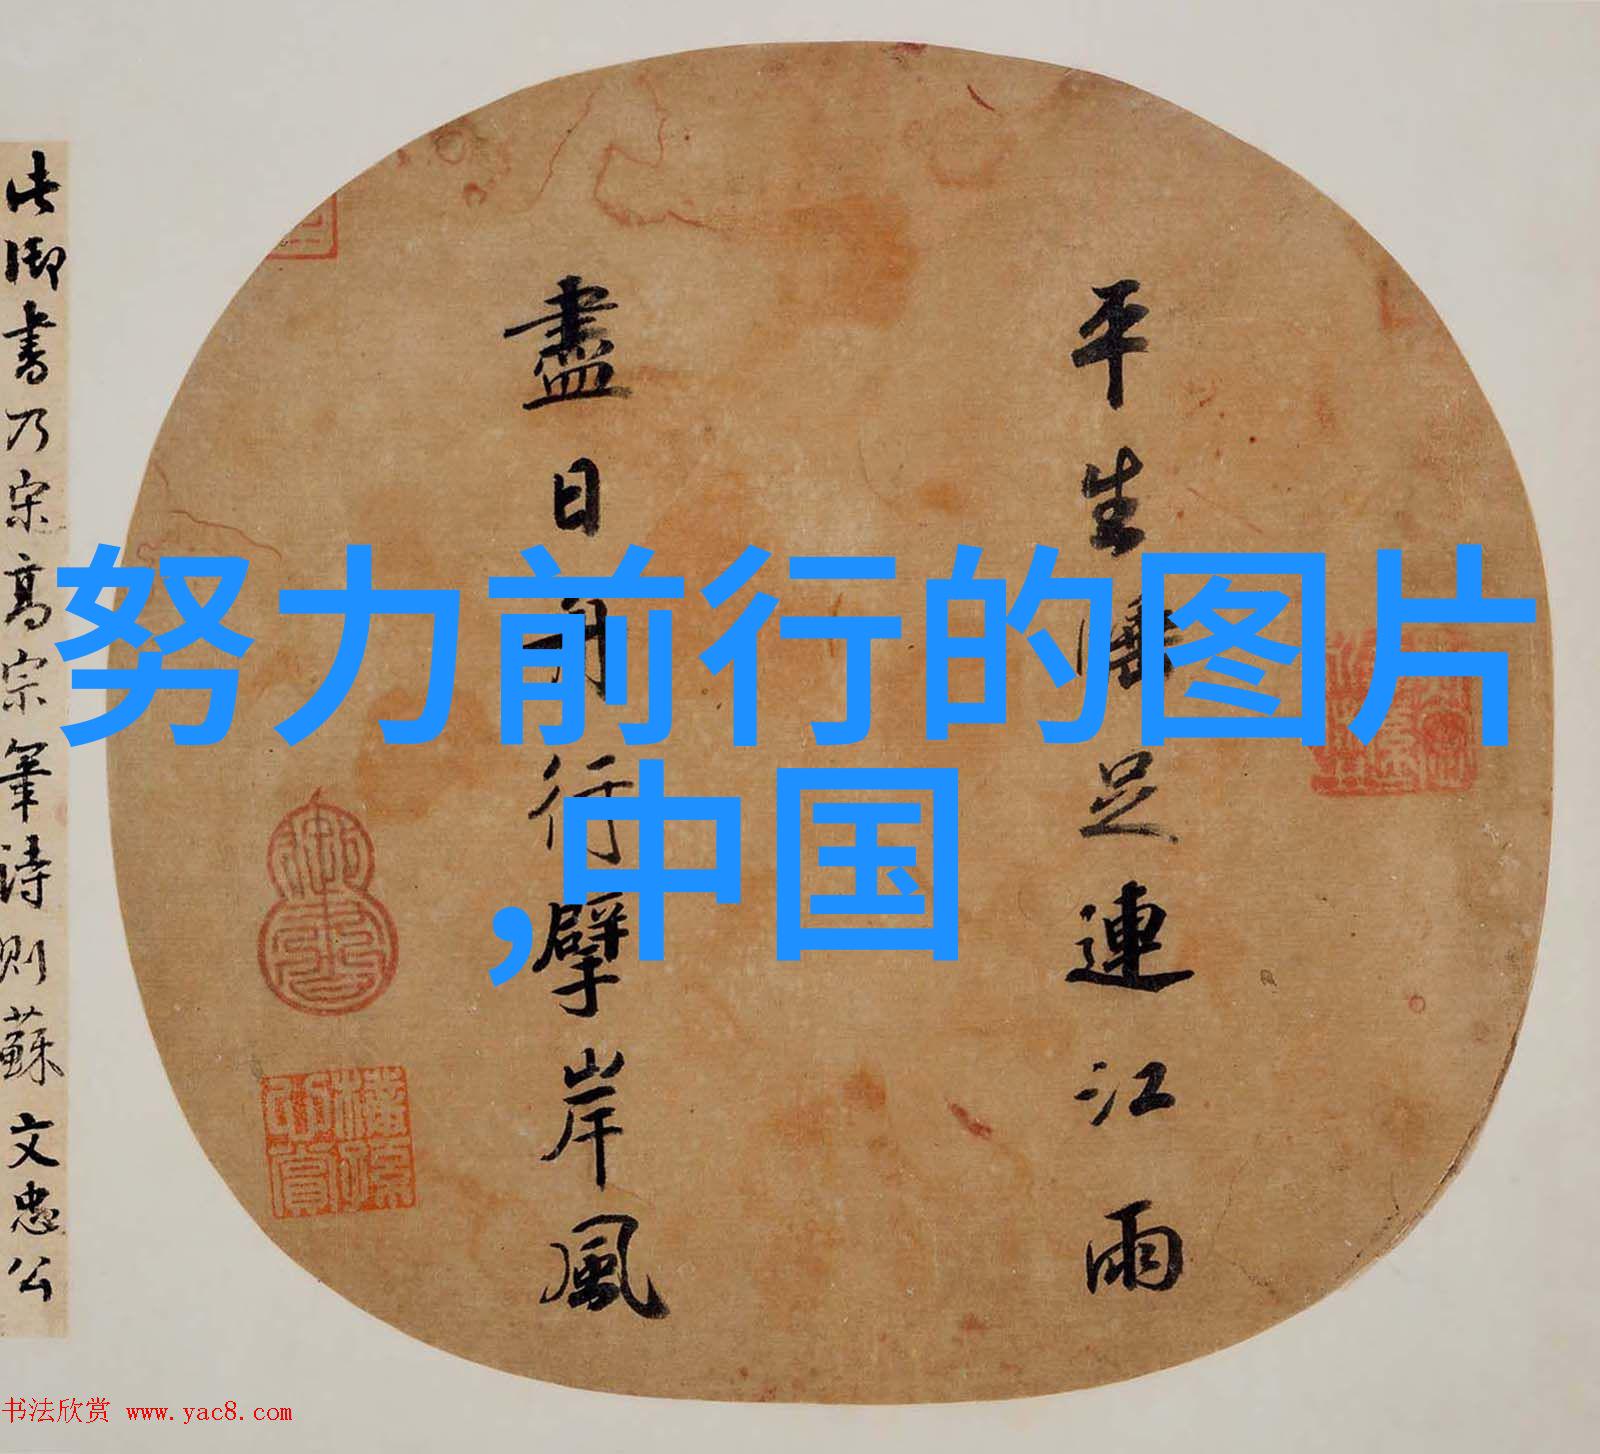 努力前行的图片
,中国
平生睡足連江雨
盡日舟行擘岸風
此御書乃宋高宗筆詩則蘇文忠公
书法欣赏 www.yac8.com